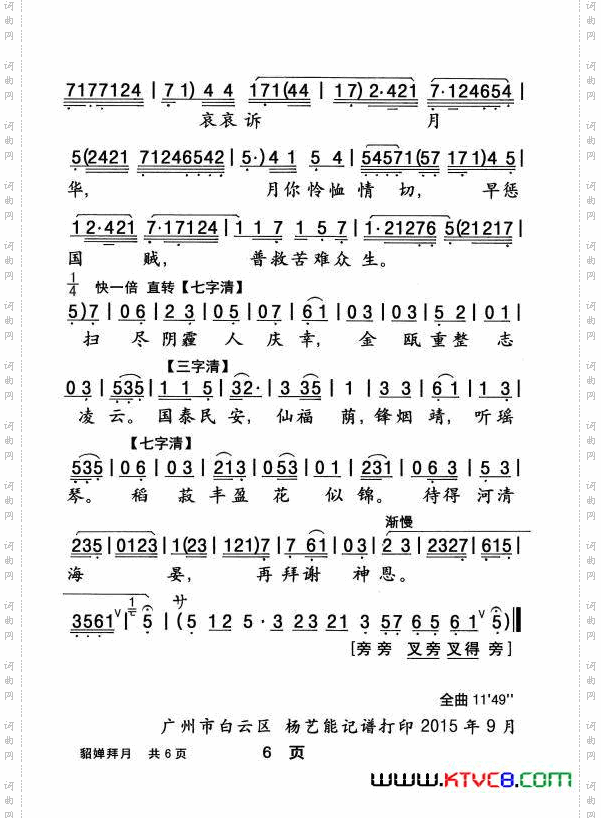 7177124 | 7 1) 4 4 171(44 | 17) 2·421 7·124654 |
哀哀诉 月
5(2421 71246542 | 5·) 4 1 5 4 | 54571(57 171) 4 5 |
华, 月你怜恤情切, 早惩
12·421 7·17124 | 1 1 7 1 5 7 | 1·21276 5(21217 |
国贼, 普救苦难众生。
1/4 快一倍 直转【七字清】
5)7 | 0 6 | 2 3 | 0 5 | 0 7 | 6 1 | 0 3 | 0 3 | 5 2 | 0 1 |
扫尽阴霾人庆幸, 金瓯重整志
【三字清】
0 3 | 535 | 1 1 5 | 32· | 3 35 | 1 | 1 3 | 6 1 | 1 3 |
凌云。国泰民安, 仙福荫, 锋烟靖, 听瑶
【七字清】
535 | 0 6 | 0 3 | 213 | 053 | 0 1 | 231 | 0 6 3 | 5 3 |
琴。稻菽丰盈花似锦。待得河清
渐慢
235 | 0123 | 1(23 | 121)7 | 7 61 | 0 3 | 2 3 | 2327 | 615 |
海晏, 再拜谢神恩。
3561 V | 5 | (5 12 5 · 3 23 21 3 57 6 5 6 1 V 5)
サ
[旁旁 叉旁叉得旁]
全曲 11'49"
广州市白云区 杨艺能记谱打印 2015年9月
貂婵拜月 共6页 6 页
www.KTVC8.com
词曲网